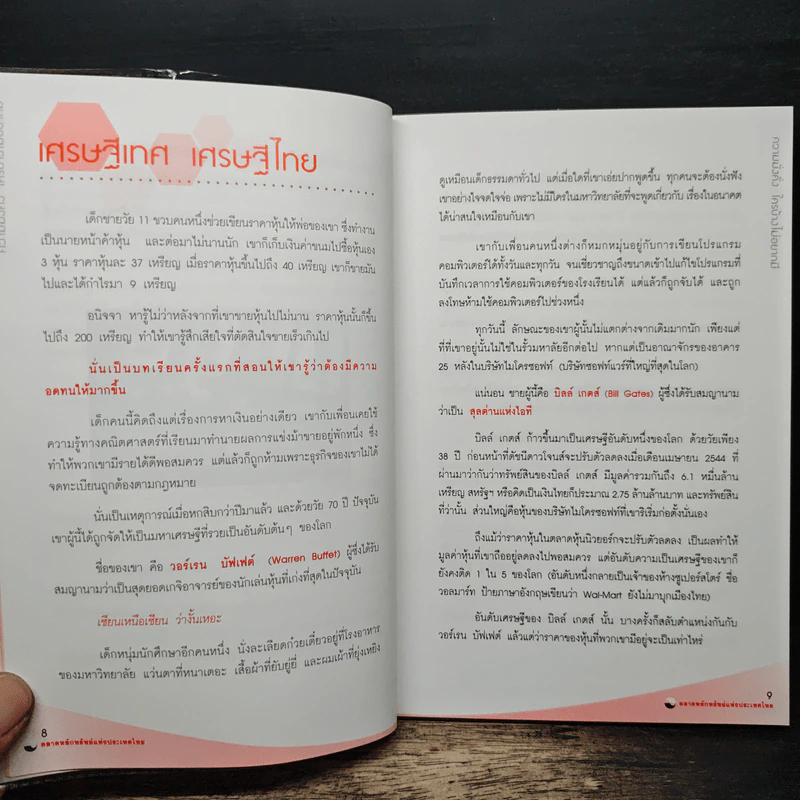 เศรษฐีเทศ เศรษฐีไทย
เด็กชายวัย 11 ขวบคนหนึ่งช่วยเขียนราคาหุ้นให้พ่อของเขา ซึ่งทำงาน
เป็นนายหน้าค้าหุ้น และต่อมาไม่นานนัก เขาก็เก็บเงินค่าขนมไปซื้อหุ้นเอง
3 หุ้น ราคาหุ้นละ 37 เหรียญ เมื่อราคาหุ้นขึ้นไปถึง 40 เหรียญ เขาก็ขายมัน
ไปและได้กำไรมา 9 เหรียญ
อนิจจา หารู้ไม่ว่าหลังจากที่เขาขายหุ้นไปไม่นาน ราคาหุ้นนั้นก็ขึ้น
ไปถึง 200 เหรียญ ทำให้เขารู้สึกเสียใจที่ตัดสินใจขายเร็วเกินไป
นั่นเป็นบทเรียนครั้งแรกที่สอนให้เขารู้ว่าต้องมีความ
อดทนให้มากขึ้น
เด็กคนนี้คิดถึงแต่เรื่องการหาเงินอย่างเดียว เขากับเพื่อนเคยใช้
ความรู้ทางคณิตศาสตร์ที่เรียนมาทำนายผลการแข่งม้าขายอยู่พักหนึ่ง ซึ่ง
ทำให้พวกเขามีรายได้ดีพอสมควร แต่แล้วก็ถูกห้ามเพราะธุรกิจของเขาไม่ได้
จดทะเบียนถูกต้องตามกฎหมาย
นั่นเป็นเหตุการณ์เมื่อหกสิบกว่าปีมาแล้ว และด้วยวัย 70 ปี ปัจจุบัน
เขาผู้นี้ได้ถูกจัดให้เป็นมหาเศรษฐีที่รวยเป็นอันดับต้นๆ ของโลก
ชื่อของเขา คือ วอร์เรน บัฟเฟต์ (Warren Buffet) ผู้ซึ่งได้รับ
สมญานามว่าเป็นสุดยอดเกจิอาจารย์ของนักเล่นหุ้นที่เก่งที่สุดในปัจจุบัน
เซียนเหนือเซียน ว่างั้นเหอะ
เด็กหนุ่มนักศึกษาอีกคนหนึ่ง นั่งละเลียดก๋วยเตี๋ยวอยู่ที่โรงอาหาร
ของมหาวิทยาลัย แว่นตาที่หนาเตอะ เสื้อผ้าที่ยับยู่ยี่ และผมเผ้าที่ยุ่งเหยิง
8
ตลาดหลักทรัพย์แห่งประเทศไทย
ความมั่งคั่ง ใครบ้างไม่อยากมี
ดูเหมือนเด็กธรรมดาทั่วไป แต่เมื่อใดที่เขาเอ่ยปากพูดขึ้น ทุกคนจะต้องนั่งฟัง
เขาอย่างใจจดใจจ่อ เพราะไม่มีใครในมหาวิทยาลัยที่จะพูดเกี่ยวกับ เรื่องในอนาคต
ได้น่าสนใจเหมือนกับเขา
เขากับเพื่อนคนหนึ่งต่างก็หมกหมุ่นอยู่กับการเขียนโปรแกรม
คอมพิวเตอร์ได้ทั้งวันและทุกวัน จนเชี่ยวชาญถึงขนาดเข้าไปแก้ไขโปรแกรมที่
บันทึกเวลาการใช้คอมพิวเตอร์ของโรงเรียนได้ แต่แล้วก็ถูกจับได้ และถูก
ลงโทษห้ามใช้คอมพิวเตอร์ไปช่วงหนึ่ง
ทุกวันนี้ ลักษณะของเขาผู้นั้นไม่แตกต่างจากเดิมมากนัก เพียงแต่
ที่ที่เขาอยู่นั้นไม่ใช่ในรั้วมหาลัยอีกต่อไป หากแต่เป็นอาณาจักรของอาคาร
25 หลังในบริษัทไมโครซอฟท์ (บริษัทซอฟท์แวร์ที่ใหญ่ที่สุดในโลก)
แน่นอน ชายผู้นี้คือ บิลล์ เกตส์ (Bill Gates) ผู้ซึ่งได้รับสมญานาม
ว่าเป็น สุลต่านแห่งไอที
บิลล์ เกตส์ ก้าวขึ้นมาเป็นเศรษฐีอันดับหนึ่งของโลก ด้วยวัยเพียง
38 ปี ก่อนหน้าที่ดัชนีดาวโจนส์จะปรับตัวลดลงเมื่อเดือนเมษายน 2544 ที่
ผ่านมาว่ากันว่าทรัพย์สินของบิลล์ เกตส์ มีมูลค่ารวมกันถึง 6.1 หมื่นล้าน
เหรียญ สหรัฐฯ หรือคิดเป็นเงินไทยก็ประมาณ 2.75 ล้านล้านบาท และทรัพย์สิน
ที่ว่านั้น ส่วนใหญ่คือหุ้นของบริษัทไมโครซอฟท์ที่เขาริเริ่มก่อตั้งนั่นเอง
ถึงแม้ว่าราคาหุ้นในตลาดหุ้นนิวยอร์กจะปรับตัวลดลง เป็นผลทำให้
มูลค่าหุ้นที่เขาถืออยู่ลดลงไปพอสมควร แต่อันดับความเป็นเศรษฐีของเขาก็
ยังคงติด 1 ใน 5 ของโลก (อันดับหนึ่งกลายเป็นเจ้าของห้างซูเปอร์สโตร์ ชื่อ
วอลมาร์ท ป้ายภาษาอังกฤษเขียนว่า Wal-Mart ยังไม่มาบุกเมืองไทย)
อันดับเศรษฐีของ บิลล์ เกตส์ นั้น บางครั้งก็สลับตำแหน่งกันกับ
วอร์เรน บัฟเฟต์ แล้วแต่ว่าราคาของหุ้นที่พวกเขามีอยู่จะเป็นเท่าไหร่
9
ตลาดหลักทรัพย์แห่งประเทศไทย